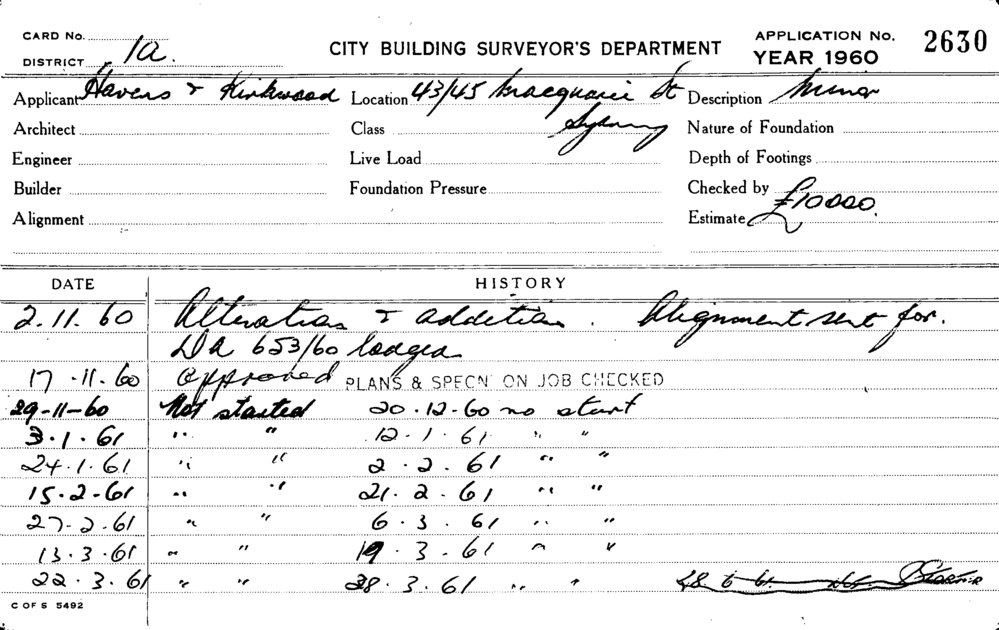 CARD No.
DISTRICT 1a.
CITY BUILDING SURVEYOR'S DEPARTMENT
APPLICATION No. 2630
YEAR 1960
Applicant Havens & Kirkwood Location 43/45 Macquarie St Description Minor
Architect Class Sydney Nature of Foundation
Engineer Live Load Depth of Footings
Builder Foundation Pressure Checked by
Alignment Estimate £10000.
DATE HISTORY
2.11.60 Alteration & addition. Alignment sent for.
DA 653/60 lodged
17.11.60 Approved PLANS & SPECN ON JOB CHECKED
29-11-60 Not started 20.12-60 no start
3.1.61 " " 12.1.61 " "
24.1.61 " " 2.2.61 " "
15.2-61 " " 21.2.61 " "
27-2.61 " " 6.3.61 " "
13.3.61 " " 19.3.61 " "
22.3.61 " " 28.3.61 " "
C OF S 5492